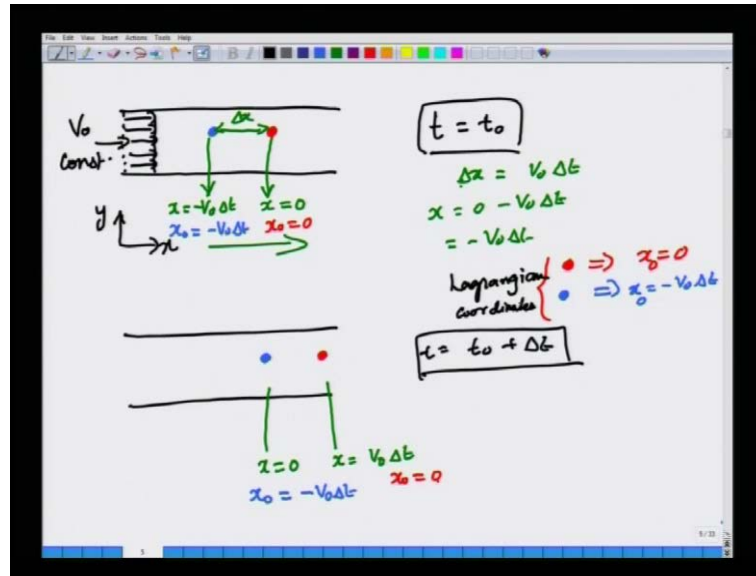 File Edit View Insert Actions Tools Help
V₀
const.
Δx
x = -V₀Δt x = 0
x₀ = -V₀Δt x₀ = 0
y
x
t = t₀
Δx = V₀ Δt
x = 0 - V₀ Δt
= - V₀ Δt
Lagrangian
coordinates
⇒ x₀ = 0
⇒ x₀ = - V₀ Δt
t = t₀ + Δt
x = 0 x = V₀ Δt
x₀ = - V₀Δt x₀ = 0
5/33
5